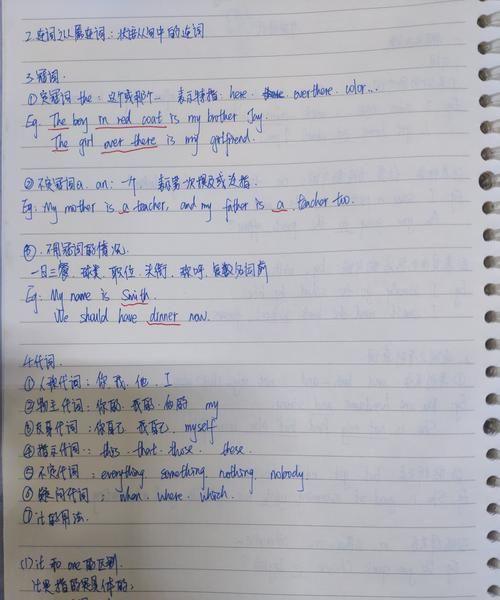 2.连词之从属连词：状语从句中的连词
3.冠词.
①定冠词 the：这个或那个— 表示特指：here. over there. color...
Eg. The boy in red coat is my brother Jay.
The girl over there is my girlfriend.
②不定冠词a. an：一个. 表示第一次提及或泛指.
Eg: My mother is a teacher, and my father is a teacher too.
③. 不用冠词的情况.
一日三餐. 球类. 职位. 头衔. 称呼. 复数名词前
Eg: My name is Smith.
We should have dinner now.
4.代词.
①人称代词：你. 我. 他. I
②物主代词：你的. 我的. 他的 my
③反身代词：你自己 我自己. myself
④指示代词：this. that. those. these.
⑤不定代词：everything something. nothing. nobody
⑥疑问代词：when. where. which.
⑦it的用法.
(1) it 和 one 的区别.
it是指的是具体的；